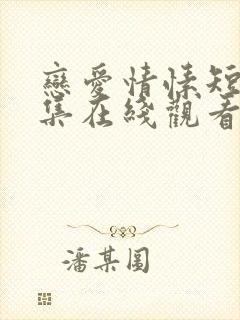 戀愛情愫短
集在綫觀看
潘某圓